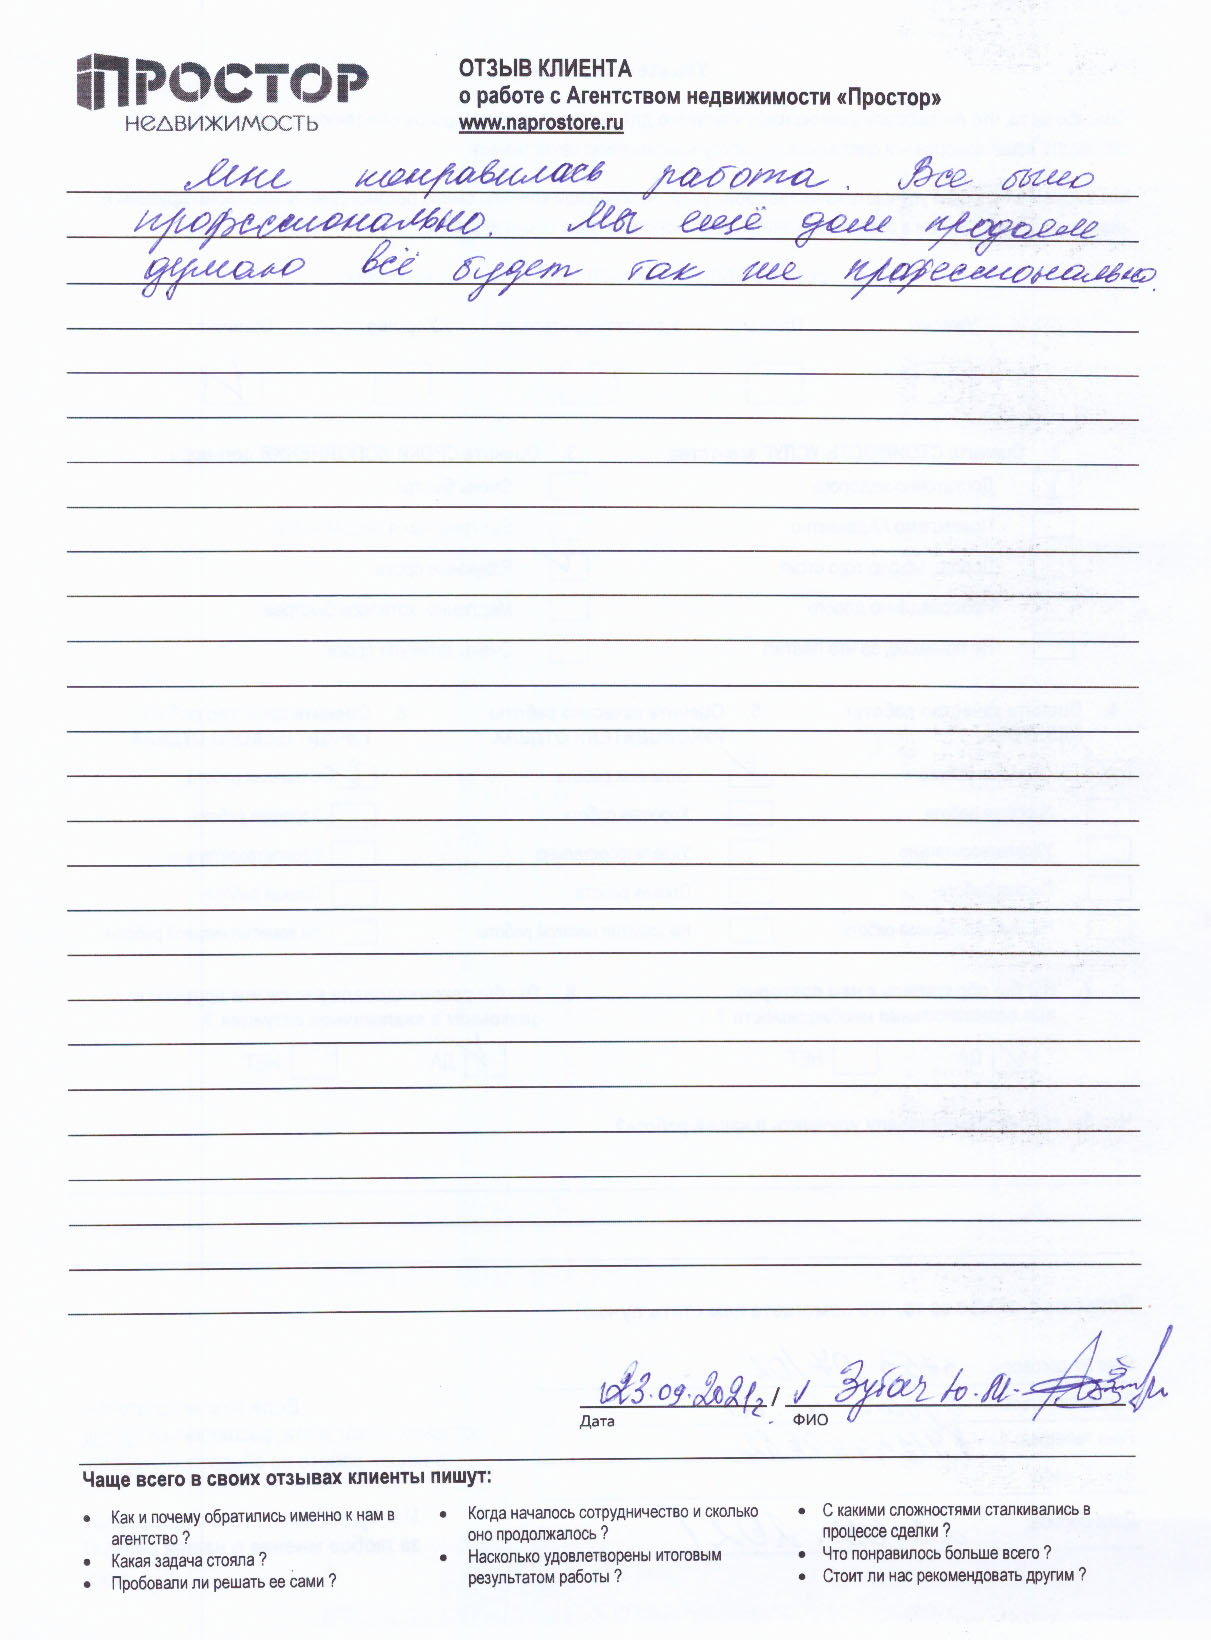 ПРОСТОР
НЕДВИЖИМОСТЬ
ОТЗЫВ КЛИЕНТА
о работе с Агентством недвижимости «Простор»
www.naprostore.ru
Мне понравилась работа. Все было
профессионально. Мы ещё дом продаем
думаю всё будет так же профессионально.
23.09.2021г. /
Зубач Ю.М.
Дата
ФИО
Чаще всего в своих отзывах клиенты пишут:
• Как и почему обратились именно к нам в
агентство ?
• Какая задача стояла ?
• Пробовали ли решать ее сами ?
• Когда началось сотрудничество и сколько
оно продолжалось ?
• Насколько удовлетворены итоговым
результатом работы ?
• С какими сложностями сталкивались в
процессе сделки ?
• Что понравилось больше всего ?
• Стоит ли нас рекомендовать другим ?